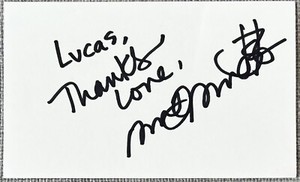 Lucas,
Thanks
Love,